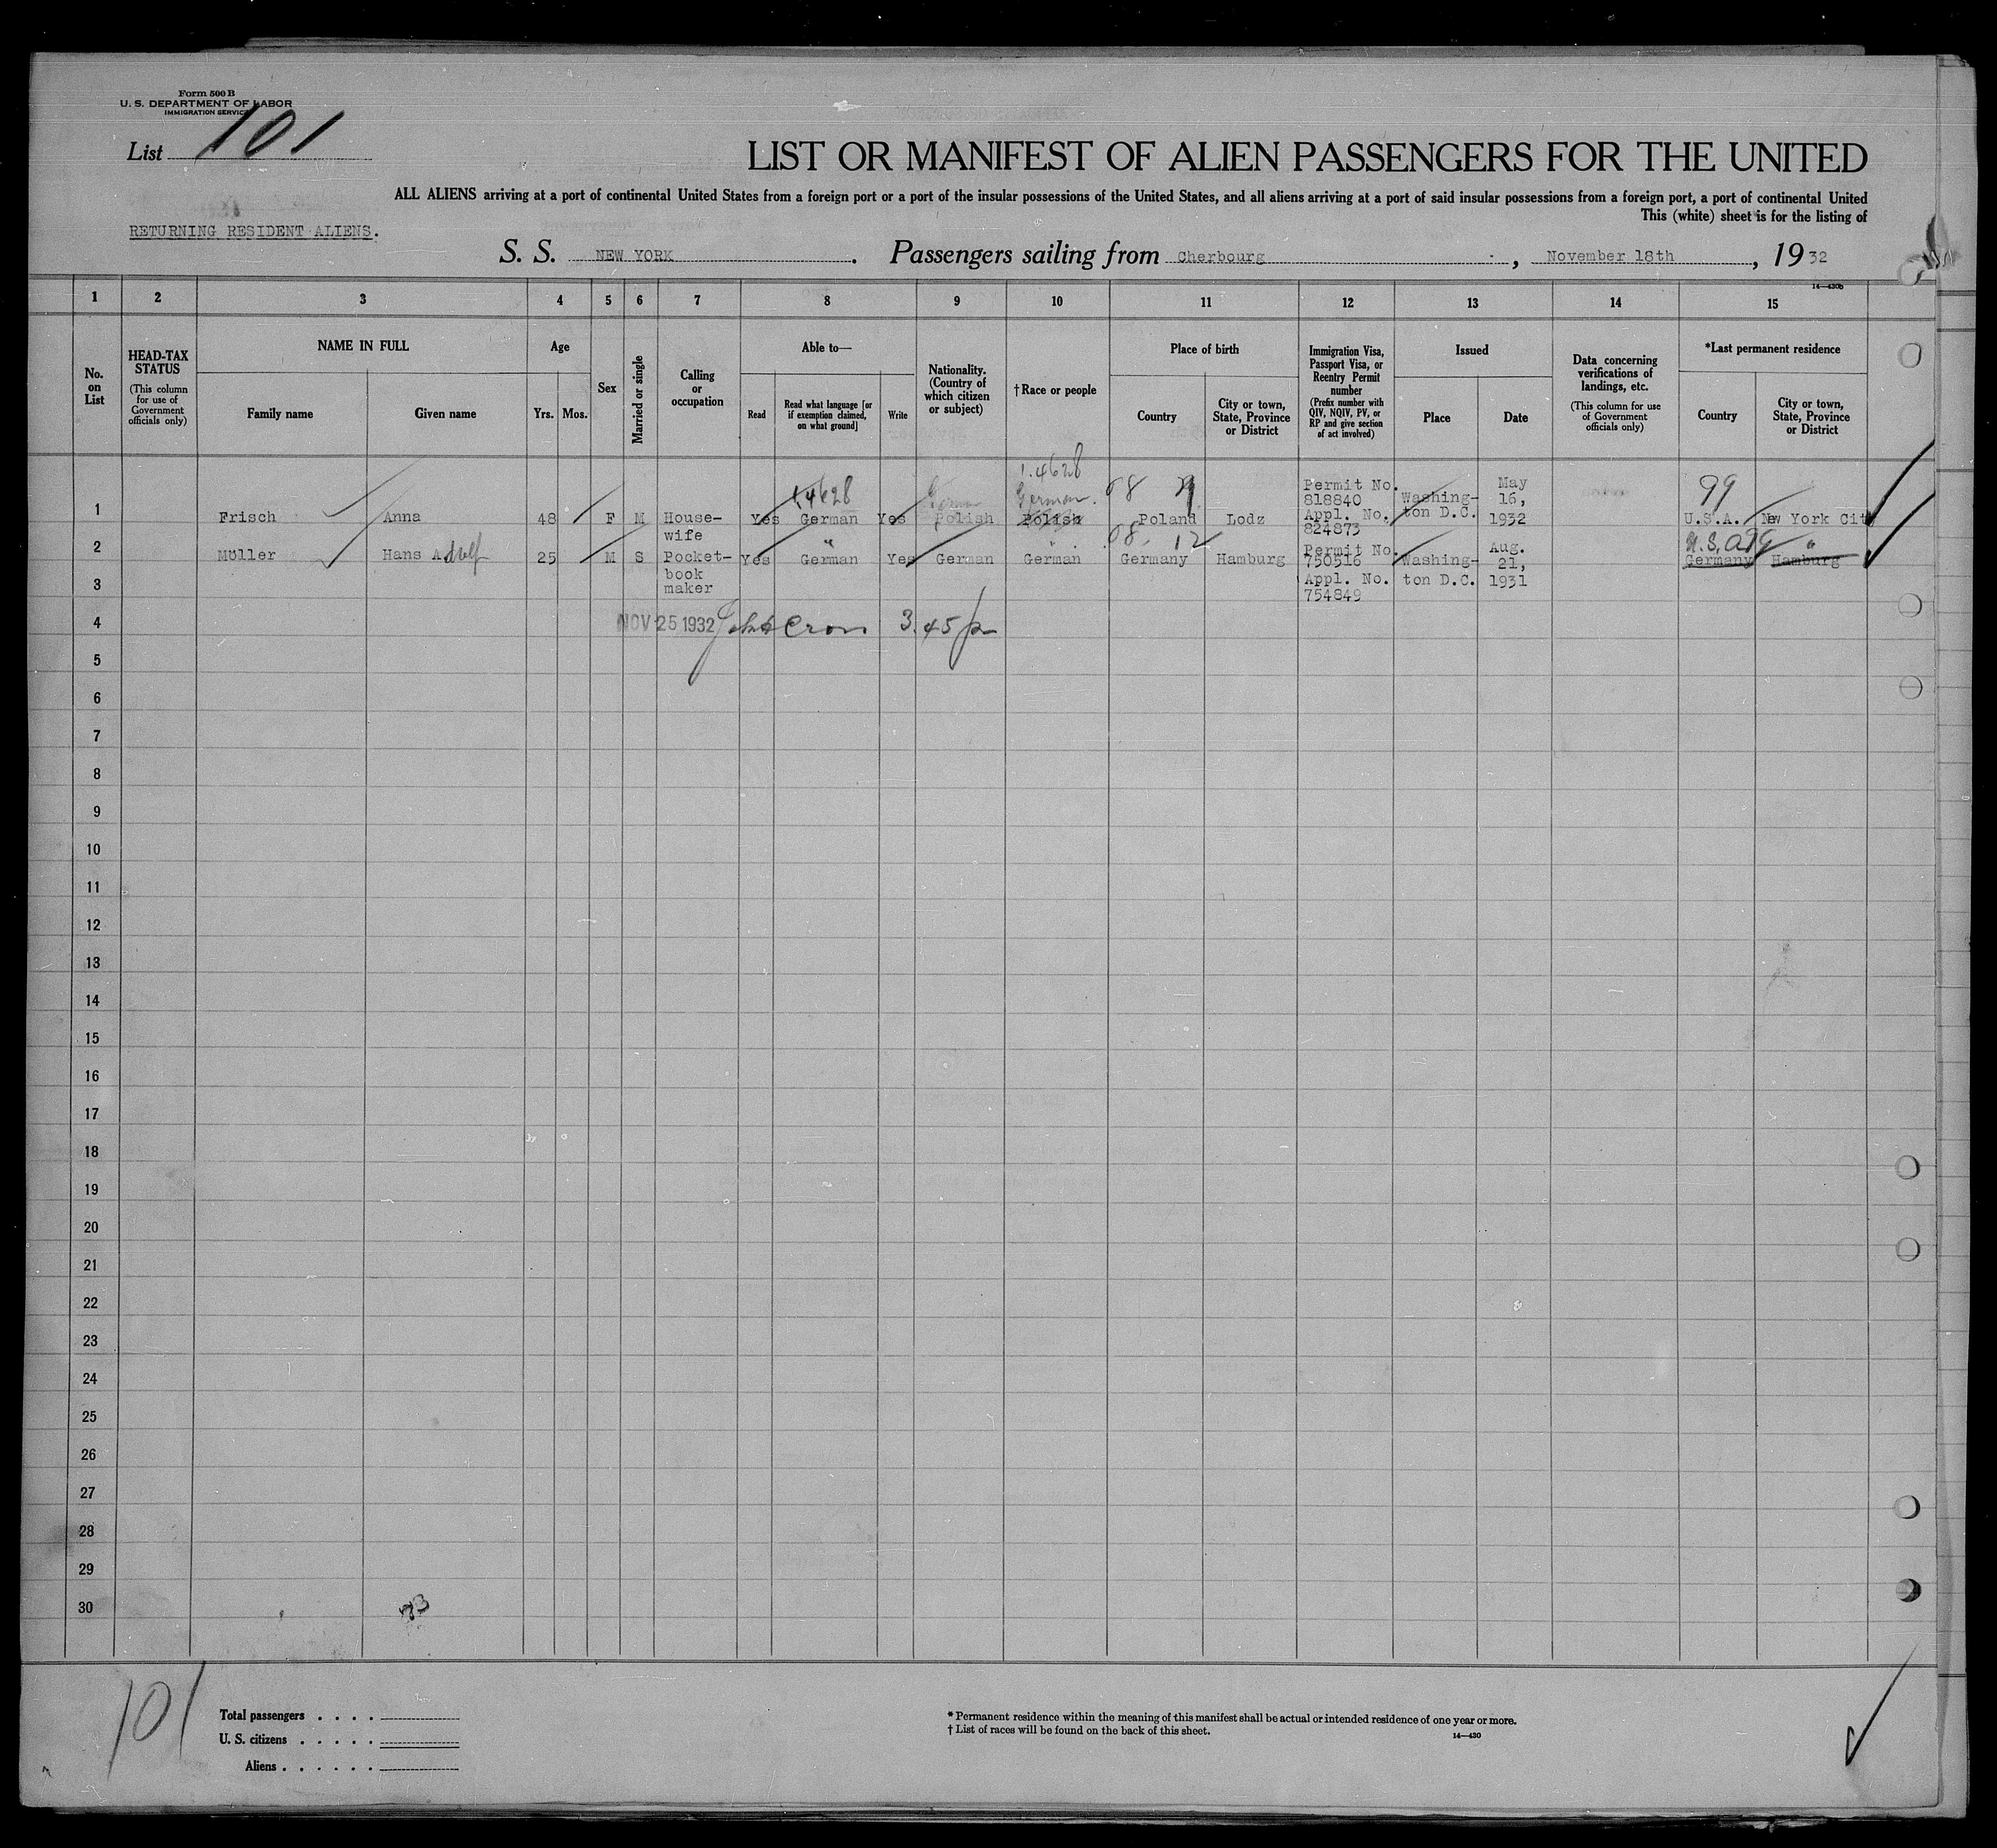 Form 500 B
U. S. DEPARTMENT OF LABOR
IMMIGRATION SERVICE
List 101
LIST OR MANIFEST OF ALIEN PASSENGERS FOR THE UNITED
ALL ALIENS arriving at a port of continental United States from a foreign port or a port of the insular possessions of the United States, and all aliens arriving at a port of said insular possessions from a foreign port, a port of continental United
This (white) sheet is for the listing of
RETURNING RESIDENT ALIENS.
S. S. NEW YORK. Passengers sailing from Cherbourg, November 18th, 1932
14—430b
1 2 3 4 5 6 7 8 9 10 11 12 13 14 15
No. on List
HEAD-TAX STATUS
(This column for use of Government officials only)
NAME IN FULL
Family name
Given name
Age
Yrs. Mos.
Sex
Married or single
Calling or occupation
Able to—
Read
Read what language [or if exemption claimed, on what ground]
Write
Nationality. (Country of which citizen or subject)
† Race or people
Place of birth
Country
City or town, State, Province or District
Immigration Visa, Passport Visa, or Reentry Permit number
(Prefix number with QIV, NQIV, PV, or RP and give section of act involved)
Issued
Place
Date
Data concerning verifications of landings, etc.
(This column for use of Government officials only)
*Last permanent residence
Country
City or town, State, Province or District
1.4628
1.4628
German
German.
08
99
1 Frisch Anna 48 F M House-wife Yes German Yes Polish Polish Poland Lodz Permit No. 818840 Appl. No. 824873 Washing-ton D.C. May 16, 1932 U.S.A. New York City
08. 12
U.S.A 99 "
2 Müller Hans Adolf 25 M S Pocket-book maker Yes German Yes German German Germany Hamburg Permit No. 750516 Appl. No. 754849 Washing-ton D.C. Aug. 21, 1931 Germany Hamburg
3
4 NOV 25 1932 3.45 p
5
6
7
8
9
10
11
12
13
14
15
16
17
18
19
20
21
22
23
24
25
26
27
28
29
30
101
Total passengers . . . .
U. S. citizens . . . . .
Aliens . . . . . .
* Permanent residence within the meaning of this manifest shall be actual or intended residence of one year or more.
† List of races will be found on the back of this sheet.
14—430